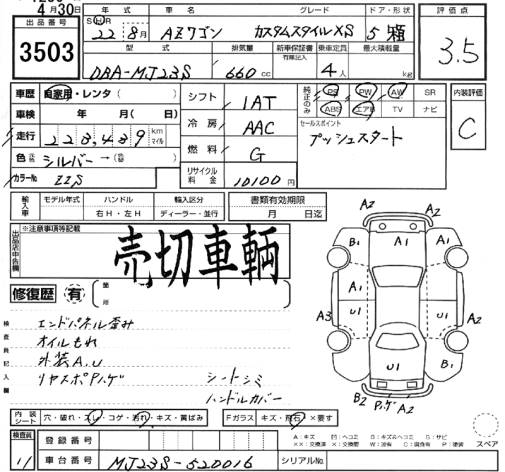 4月30日
出品番号
3503
年式 車名 グレード ドア・形状
S H R 22 8月 AZワゴン カスタムスタイルXS 5 箱
型式 排気量 新車保証書 有 記録簿 乗車定員 最大積載量
DBA-MJ23S 660cc 4人 kg
評価点
3.5
車歴 自家用・レンタ( )
車検 年 月( 日)
走行 228,439 km マイル
色 シルバー→
カラーNo ZZS
シフト 1AT
冷房 AAC
燃料 G
リサイクル料金 10100円
純正のみ PS PW AW SR
ABS エアB TV ナビ
セールスポイント
プッシュスタート
内装評価
C
輸入車 モデル年式 ハンドル 輸入区分
右H・左H ディーラー・並行
書類有効期限
月 日迄
出品店申告欄
※注意事項等記載
売切車輌
修復歴 有 箇所
検査員記入欄
エンドパネル歪み
オイルもれ
外装A.U
リヤスポPハゲ
シートシミ
ハンドルカバー
A2
A2 A2
B1 A1 B1
A1 A1
A3 U1 U1 A2
U1
B2 Pハゲ A2
スペア
内装シート 穴・破れ・スレ・コゲ・汚れ・キズ・黄ばみ
Fガラス キズ・飛石・×要す
A:キズ 凹:ヘコミ B:キズ&ヘコミ S:サビ
××:交換済 ×:交換要 W:波有 C:腐食有 P:塗装
検査員 11
登録番号
車台番号 MJ23S-520016 シリアルNo.